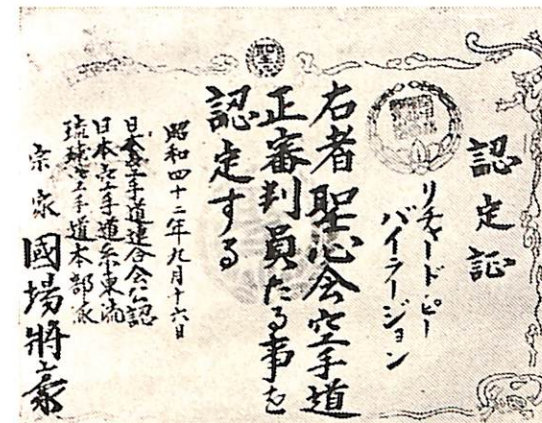 認定証
リチャード ピー
バイラージョン
右者聖心会空手道
正審判員たる事を
認定する
昭和四十二年九月十六日
日本空手道連合会公認
日本空手道糸東流
琉球空手道本部派
宗家 國場將豪